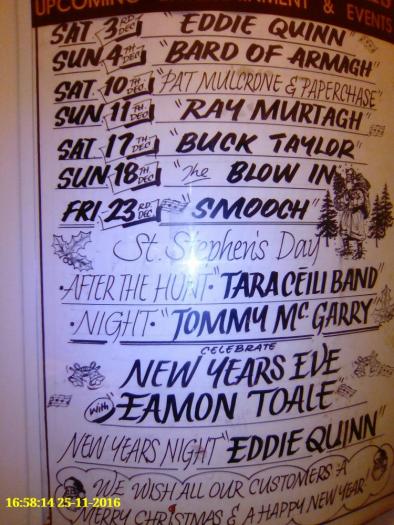 UPCOMING ENTERTAINMENT & EVENTS
SAT 3RD DEC "EDDIE QUINN"
SUN 4TH DEC "BARD OF ARMAGH"
SAT 10TH DEC "PAT MULCRONE & PAPERCHASE"
SUN 11TH DEC "RAY MURTAGH"
SAT 17TH DEC "BUCK TAYLOR"
SUN 18TH DEC "The BLOW IN"
FRI 23RD DEC "SMOOCH"
St. Stephen's Day
·AFTER THE HUNT· "TARA CEILI BAND"
·NIGHT· "TOMMY Mc. GARRY"
CELEBRATE
NEW YEARS EVE
With "EAMON TOALE"
NEW YEARS NIGHT "EDDIE QUINN"
WE WISH ALL OUR CUSTOMERS A
MERRY CHRISTMAS & A HAPPY NEW YEAR!
16:58:14 25-11-2016